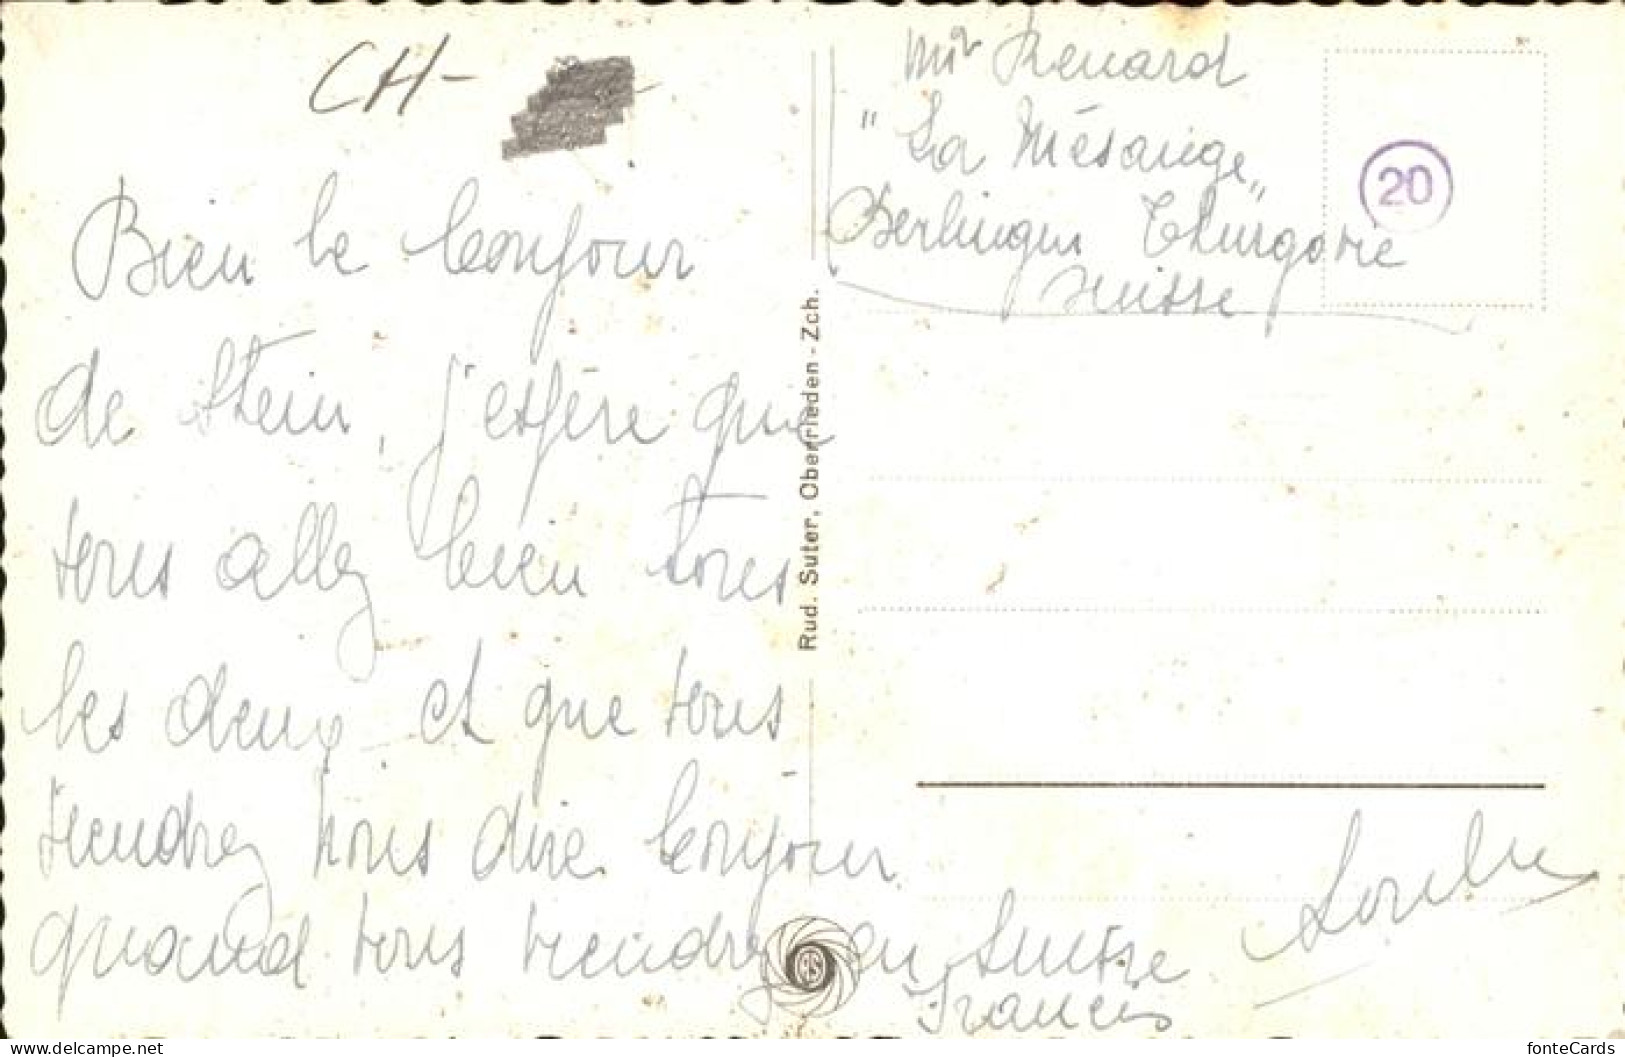 CH-
Bien le bonjour
de Stein, j'espère que
vous allez bien tous
les deux et que vous
viendrez nous dire bonjour
quand vous viendrez en Suisse
Francis
Mr Renard
"La Mésange"
Berlingen Thurgovie
Suisse
20
Rud. Suter, Oberrieden - Zch.
RS
fonteCards